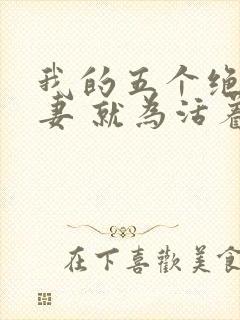 我的五个绝
妻 就為活着
在下喜歡美食